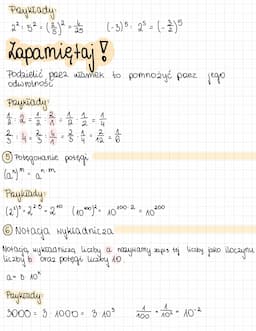 Przykłady:
2² : 5² = (2/5)² = 4/25 (-3)⁵ : 2⁵ = (-3/2)⁵
Zapamiętaj!
Podzielić przez ułamek to pomnożyć przez jego
odwrotność
Przykłady:
1/2 : 2 = 1/2 : 2/1 = 1/2 · 1/2 = 1/4
2/3 : 4 = 2/3 : 4/1 = 2/3 · 1/4 = 2/12 = 1/6
⑤ Potęgowanie potęgi
(aⁿ)ᵐ = aⁿ·ᵐ
Przykłady:
(2²)⁵ = 2²·⁵ = 2¹⁰ (10¹⁰⁰)² = 10¹⁰⁰·² = 10²⁰⁰
⑥ Notacja wykładnicza
Notacją wykładniczą liczby a nazywamy zapis tej liczby jako iloczynu
liczby b oraz potęgi liczby 10.
a = b · 10ⁿ
Przykłady:
3000 = 3 · 1000 = 3 · 10³ 1/100 = 1/10² = 10⁻²